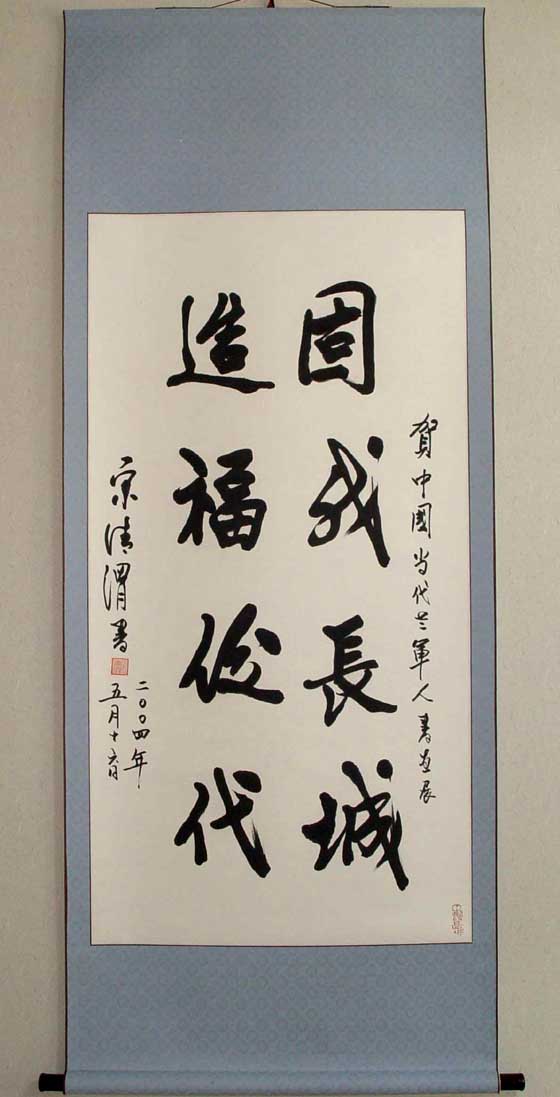 賀中國当代老軍人書画展
固我長城
造福後代
宋清渭書
二〇〇四年
五月十六日